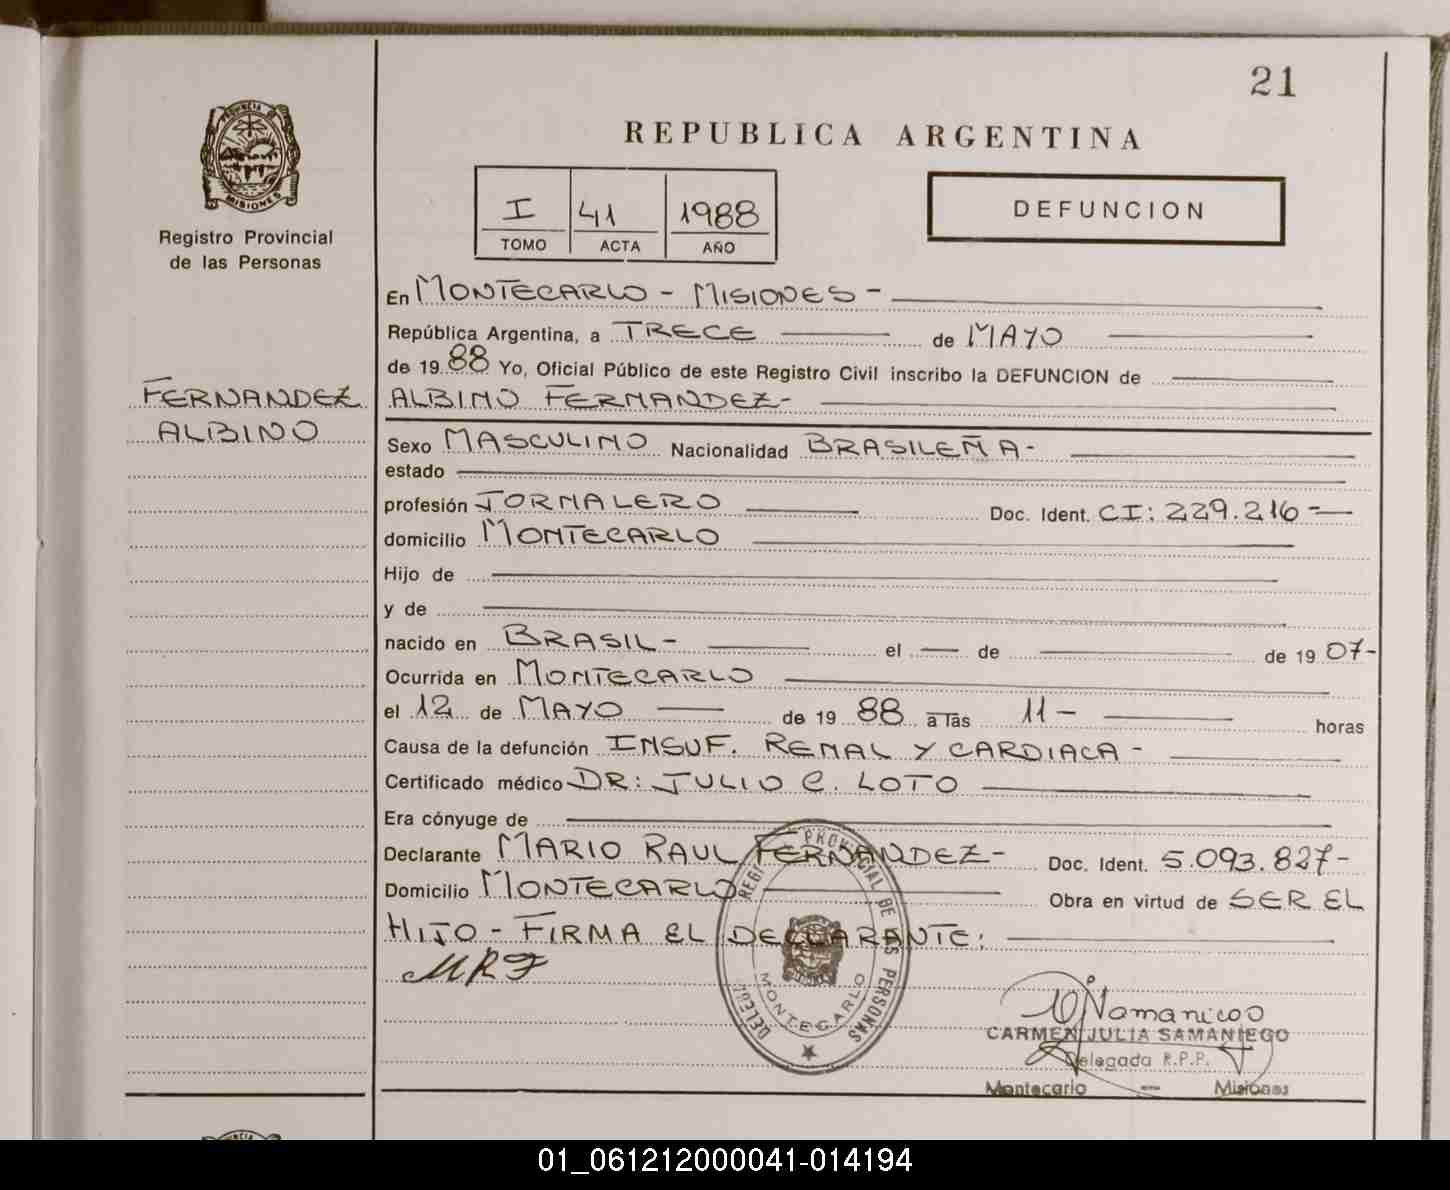 21
PROVINCIA DE
MISIONES
Registro Provincial
de las Personas
REPUBLICA ARGENTINA
I 41 1988
TOMO ACTA AÑO
DEFUNCION
En MONTECARLO - MISIONES -
República Argentina, a TRECE de MAYO
de 19 88 Yo, Oficial Público de este Registro Civil inscribo la DEFUNCION de
FERNANDEZ
ALBINO
ALBINO FERNANDEZ-
Sexo MASCULINO Nacionalidad BRASILEÑA-
estado
profesión JORNALERO Doc. Ident. CI: 229.216-
domicilio MONTECARLO
Hijo de
y de
nacido en BRASIL- el de de 19 07-
Ocurrida en MONTECARLO
el 12 de MAYO de 19 88 a las 11- horas
Causa de la defunción INSUF. RENAL Y CARDIACA-
Certificado médico DR: JULIO C. LOTO
Era cónyuge de
Declarante MARIO RAUL FERNANDEZ- Doc. Ident. 5.093.827-
Domicilio MONTECARLO Obra en virtud de SER EL
HIJO - FIRMA EL DECLARANTE:
MRF
PROVINCIAL DE LAS PERSONAS
MONTECARLO
CARMEN JULIA SAMANIEGO
Delegada R.P.P.
Montecarlo - Misiones
01_061212000041-014194